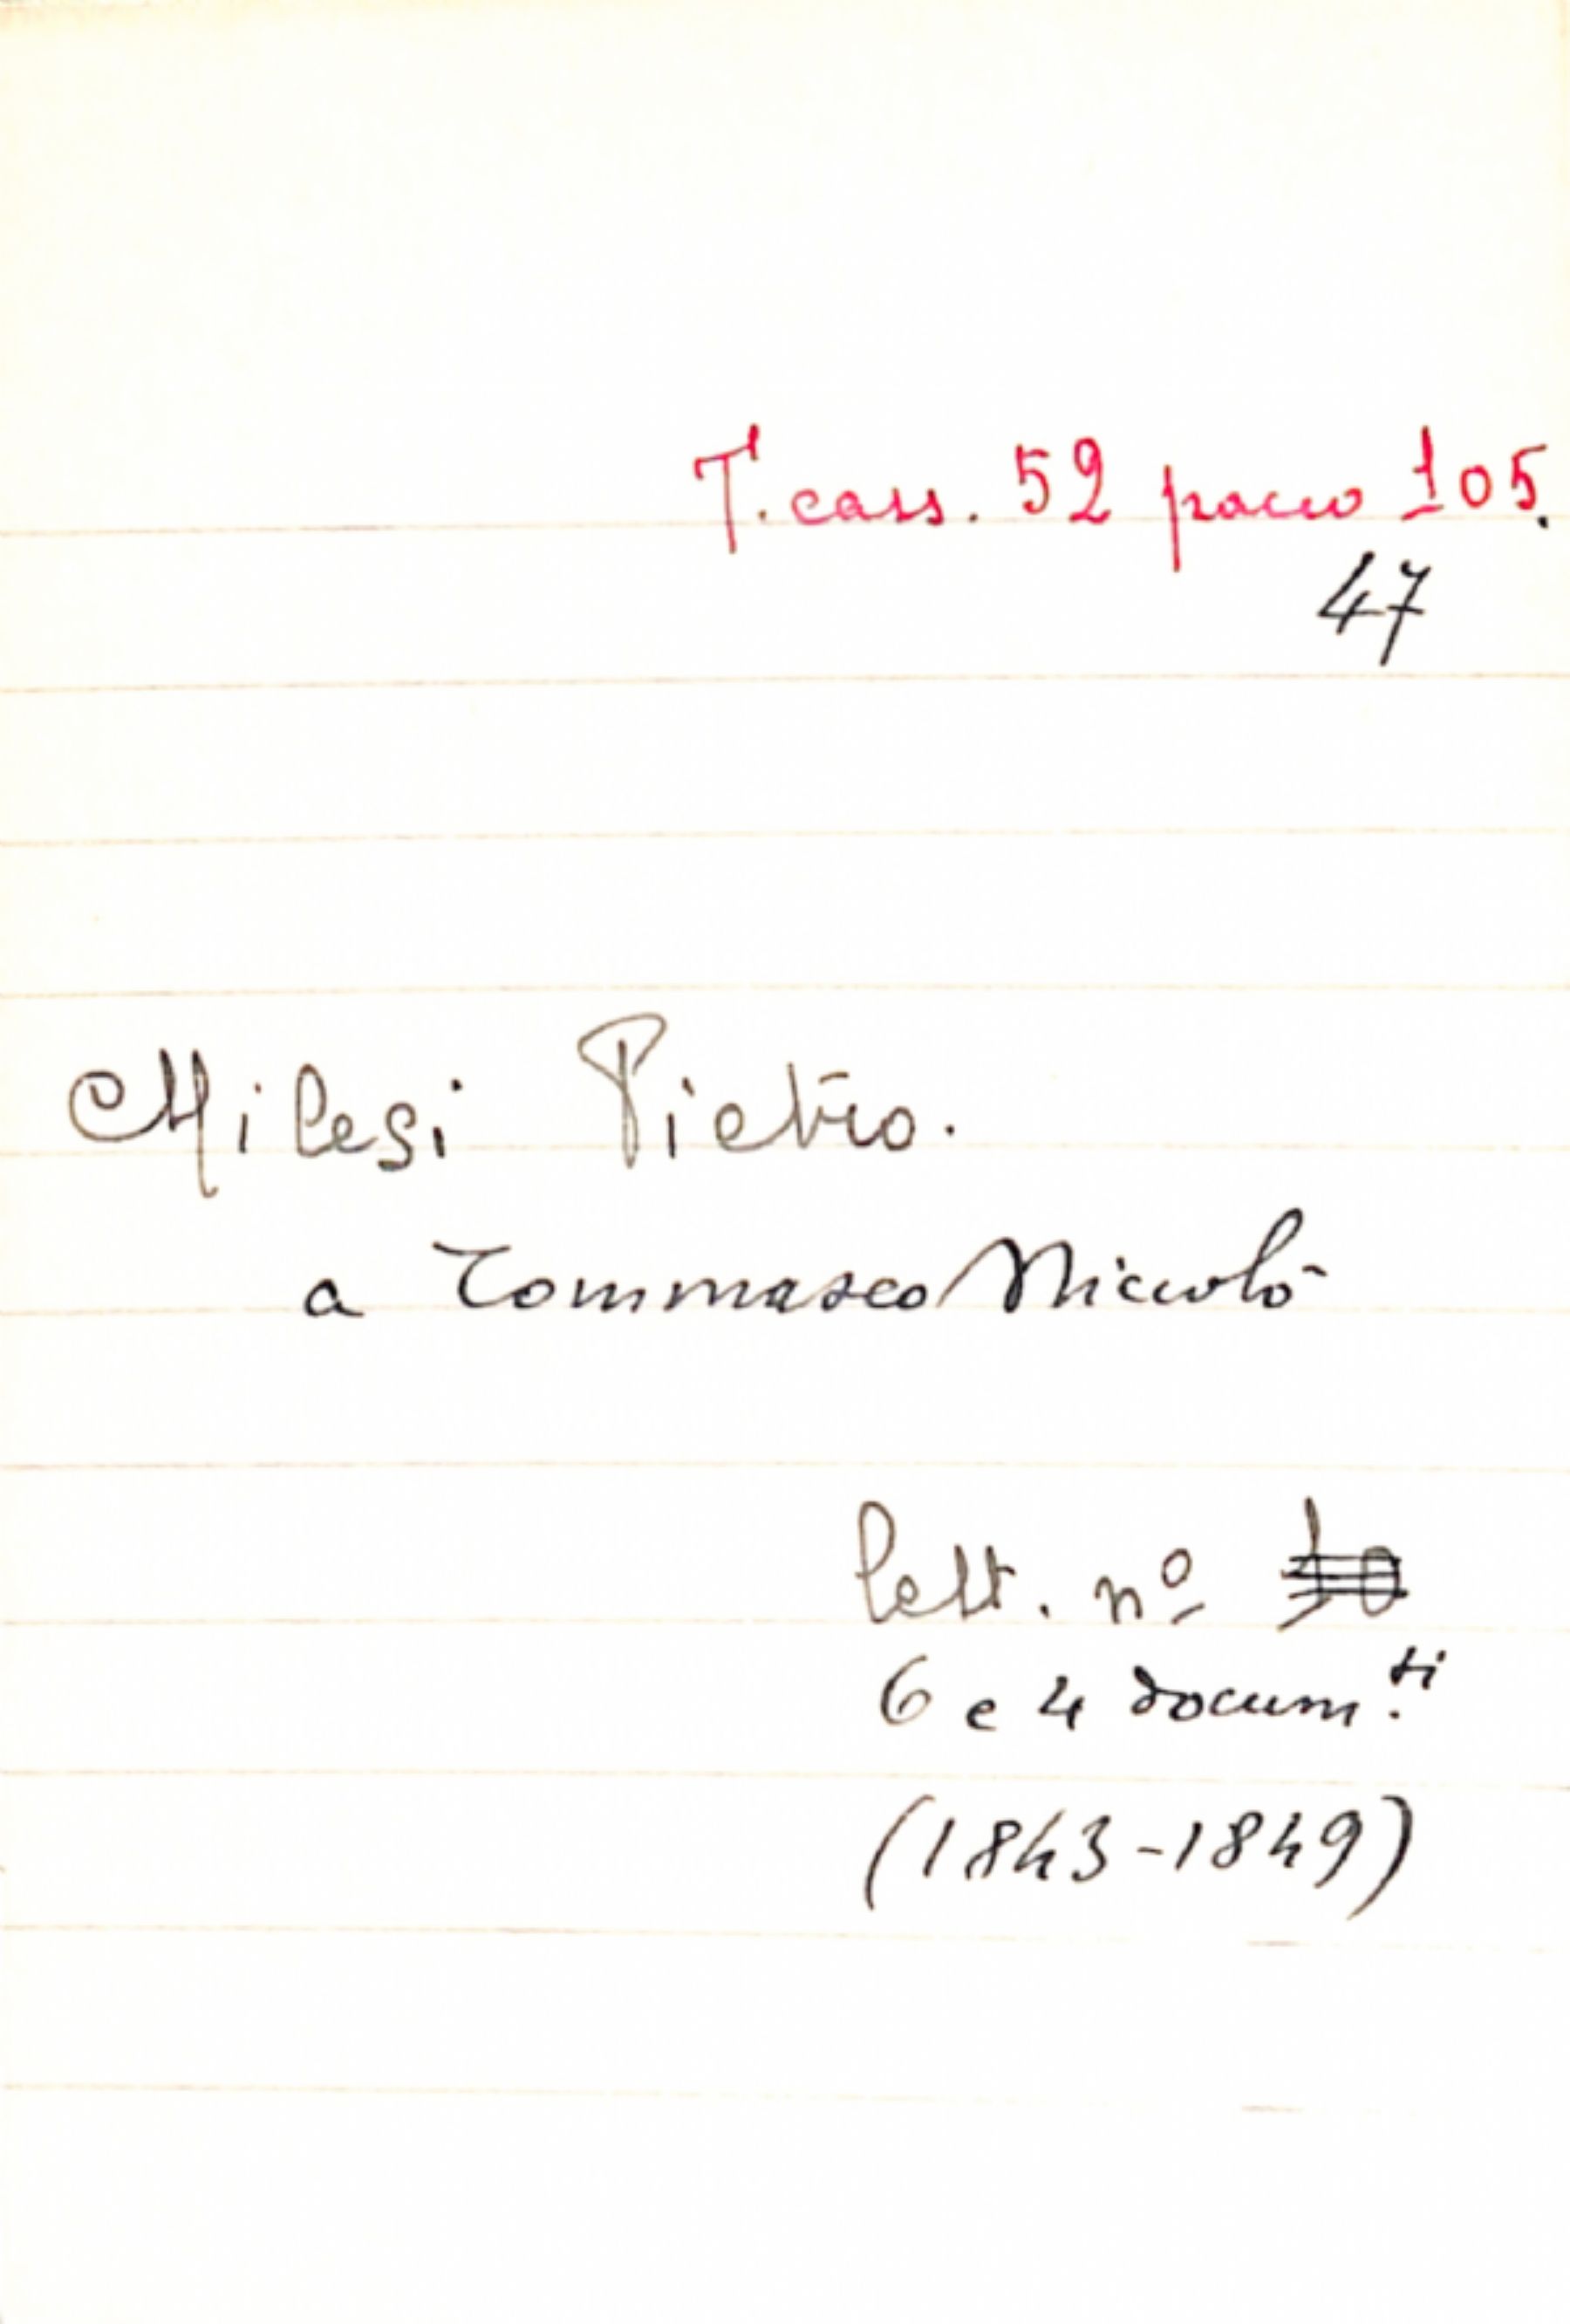 T. cass. 52 pacco 105.
47
Milesi Pietro.
a Tommaseo Niccolò
lett. nº 10
6 e 4 docum.ti
(1843-1849)